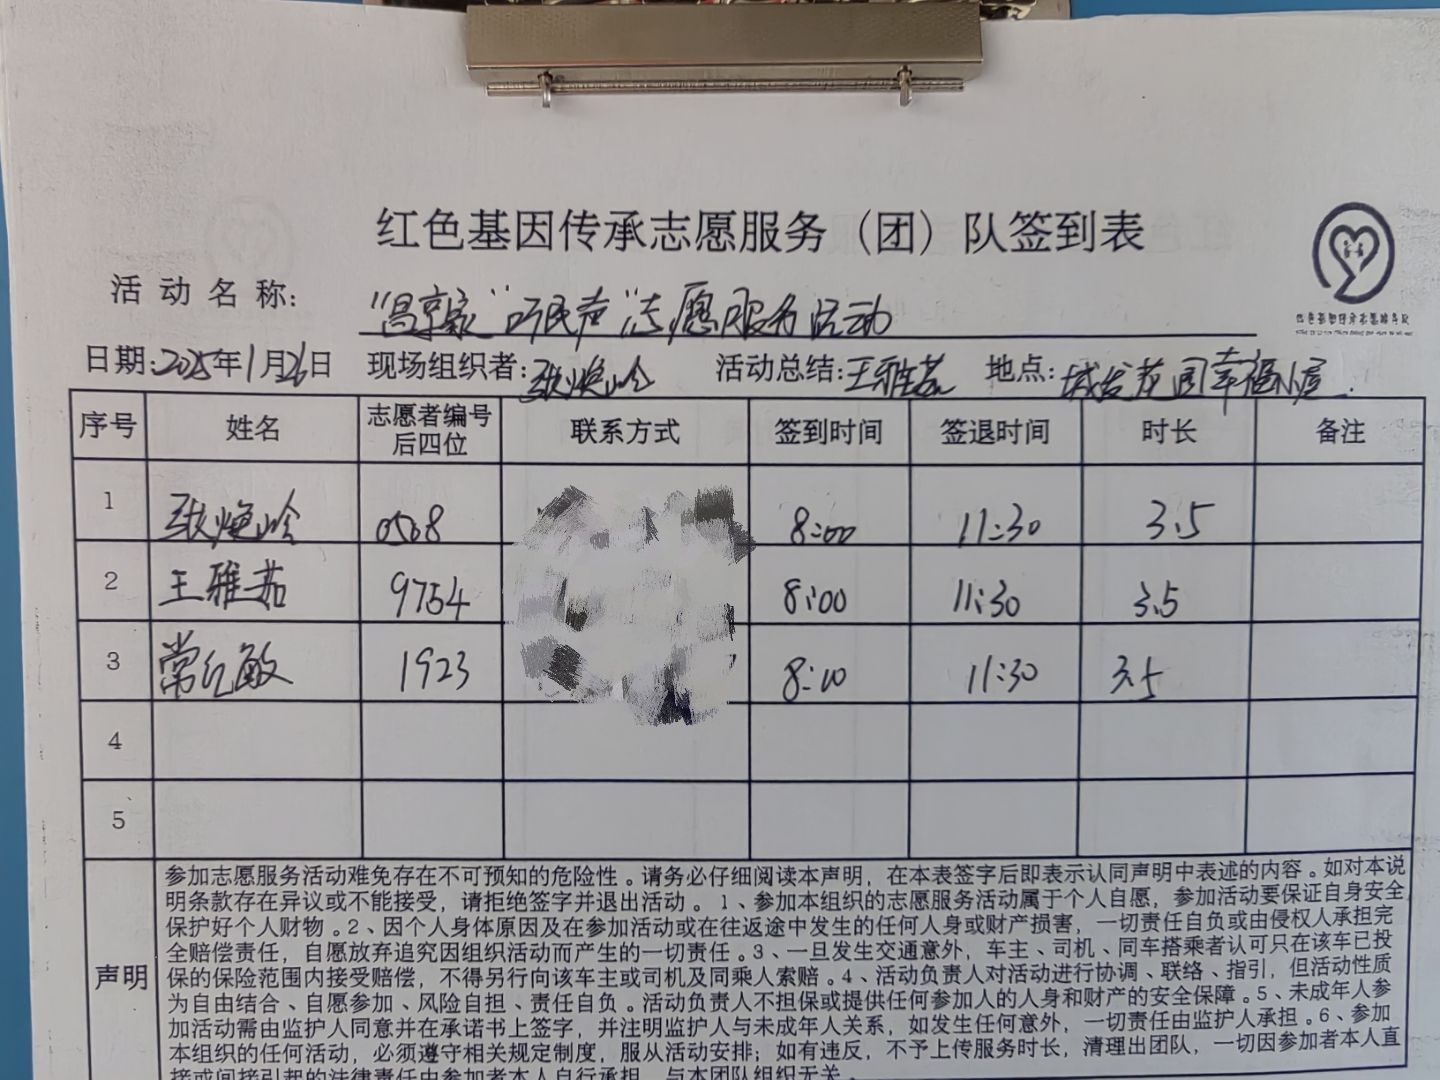 红色基因传承志愿服务（团）队签到表
活动名称: "昌享家"听民声"志愿服务活动
日期:2025年1月26日 现场组织者:张焕岭 活动总结:王雅茹 地点:城发花园幸福小屋
序号 姓名 志愿者编号后四位 联系方式 签到时间 签退时间 时长 备注
1 张焕岭 0568 8:00 11:30 3.5
2 王雅茹 9754 8:00 11:30 3.5
3 常红敏 1923 8:00 11:30 3.5
4
5
声明
参加志愿服务活动难免存在不可预知的危险性。请务必仔细阅读本声明，在本表签字后即表示认同声明中表述的内容。如对本说
明条款存在异议或不能接受，请拒绝签字并退出活动。1、参加本组织的志愿服务活动属于个人自愿，参加活动要保证自身安全
保护好个人财物。2、因个人身体原因及在参加活动或在往返途中发生的任何人身或财产损害，一切责任自负或由侵权人承担完
全赔偿责任，自愿放弃追究因组织活动而产生的一切责任。3、一旦发生交通意外，车主、司机、同车搭乘者认可只在该车已投
保的保险范围内接受赔偿，不得另行向该车主或司机及同乘人索赔。4、活动负责人对活动进行协调、联络、指引，但活动性质
为自由结合、自愿参加、风险自担、责任自负。活动负责人不担保或提供任何参加人的人身和财产的安全保障。5、未成年人参
加活动需由监护人同意并在承诺书上签字，并注明监护人与未成年人关系，如发生任何意外，一切责任由监护人承担。6、参加
本组织的任何活动，必须遵守相关规定制度，服从活动安排；如有违反，不予上传服务时长，清理出团队，一切因参加者本人直
接或间接引起的法律责任由参加者本人自行承担，与本团队组织无关。